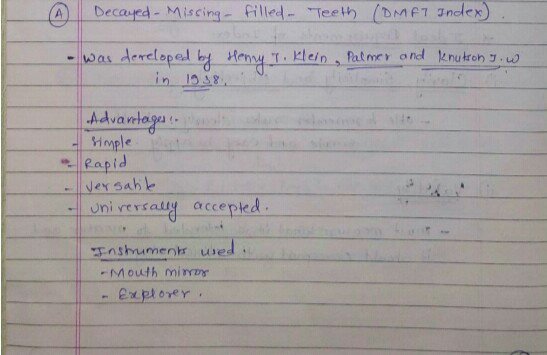 (A) Decayed - Missing - filled - Teeth (DMFT Index)
- was developed by Henry T. Klein, Palmer and Knutson J.W
in 1938.
Advantages :-
- simple
- Rapid
- versatile
- Universally accepted.
Instruments used.
- Mouth mirror
- Explorer.